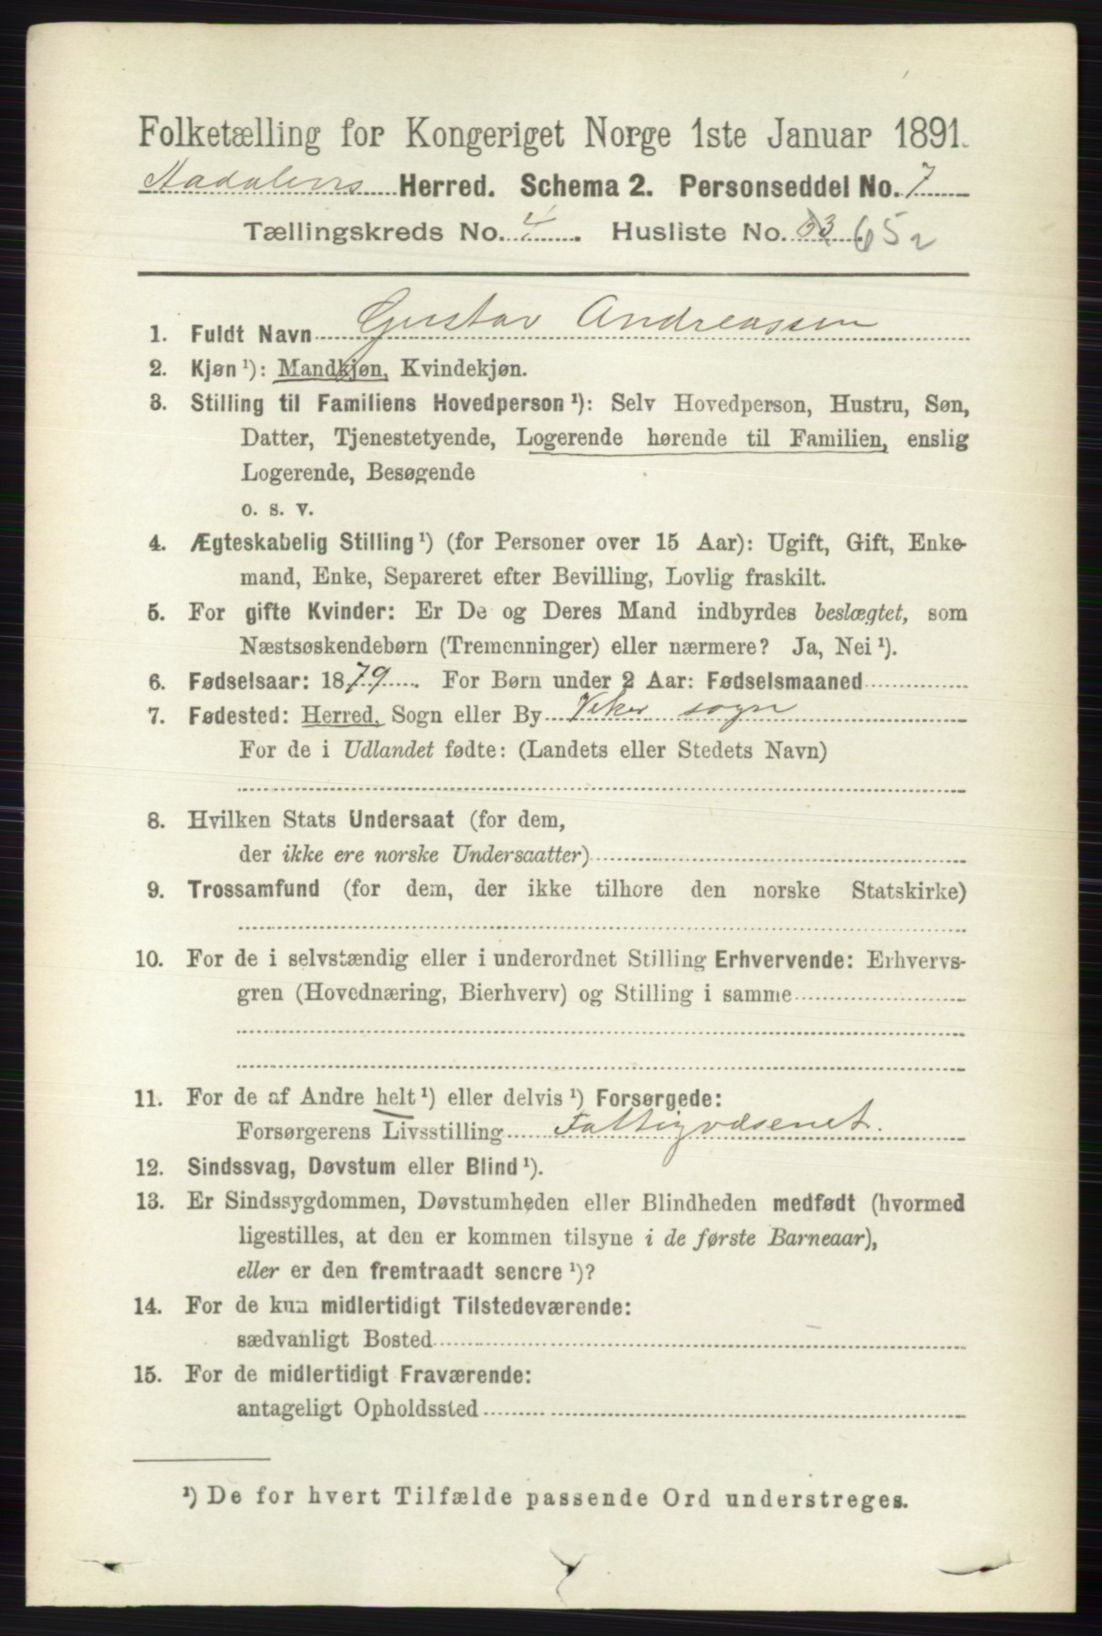 Folketælling for Kongeriget Norge 1ste Januar 1891.
Aadalens Herred. Schema 2. Personseddel No. 7
Tællingskreds No. 4. Husliste No. 33 652
1. Fuldt Navn Gustav Andreassen
2. Kjøn ¹): Mandkjøn, Kvindekjøn.
3. Stilling til Familiens Hovedperson ¹): Selv Hovedperson, Hustru, Søn,
Datter, Tjenestetyende, Logerende hørende til Familien, enslig
Logerende, Besøgende
o. s. v.
4. Ægteskabelig Stilling ¹) (for Personer over 15 Aar): Ugift, Gift, Enke-
mand, Enke, Separeret efter Bevilling, Lovlig fraskilt.
5. For gifte Kvinder: Er De og Deres Mand indbyrdes beslægtet, som
Næstsøskendebørn (Tremenninger) eller nærmere? Ja, Nei ¹).
6. Fødselsaar: 1879. For Børn under 2 Aar: Fødselsmaaned
7. Fødested: Herred, Sogn eller By Viker sogn
For de i Udlandet fødte: (Landets eller Stedets Navn)
8. Hvilken Stats Undersaat (for dem,
der ikke ere norske Undersaatter)
9. Trossamfund (for dem, der ikke tilhøre den norske Statskirke)
10. For de i selvstændig eller i underordnet Stilling Erhvervende: Erhvervs-
gren (Hovednæring, Bierhverv) og Stilling i samme
11. For de af Andre helt ¹) eller delvis ¹) Forsørgede:
Forsørgerens Livsstilling Fattigvæsenet.
12. Sindssvag, Døvstum eller Blind ¹).
13. Er Sindssygdommen, Døvstumheden eller Blindheden medfødt (hvormed
ligestilles, at den er kommen tilsyne i de første Barneaar),
eller er den fremtraadt senere ¹)?
14. For de kun midlertidigt Tilstedeværende:
sædvanligt Bosted
15. For de midlertidigt Fraværende:
antageligt Opholdssted
¹) De for hvert Tilfælde passende Ord understreges.